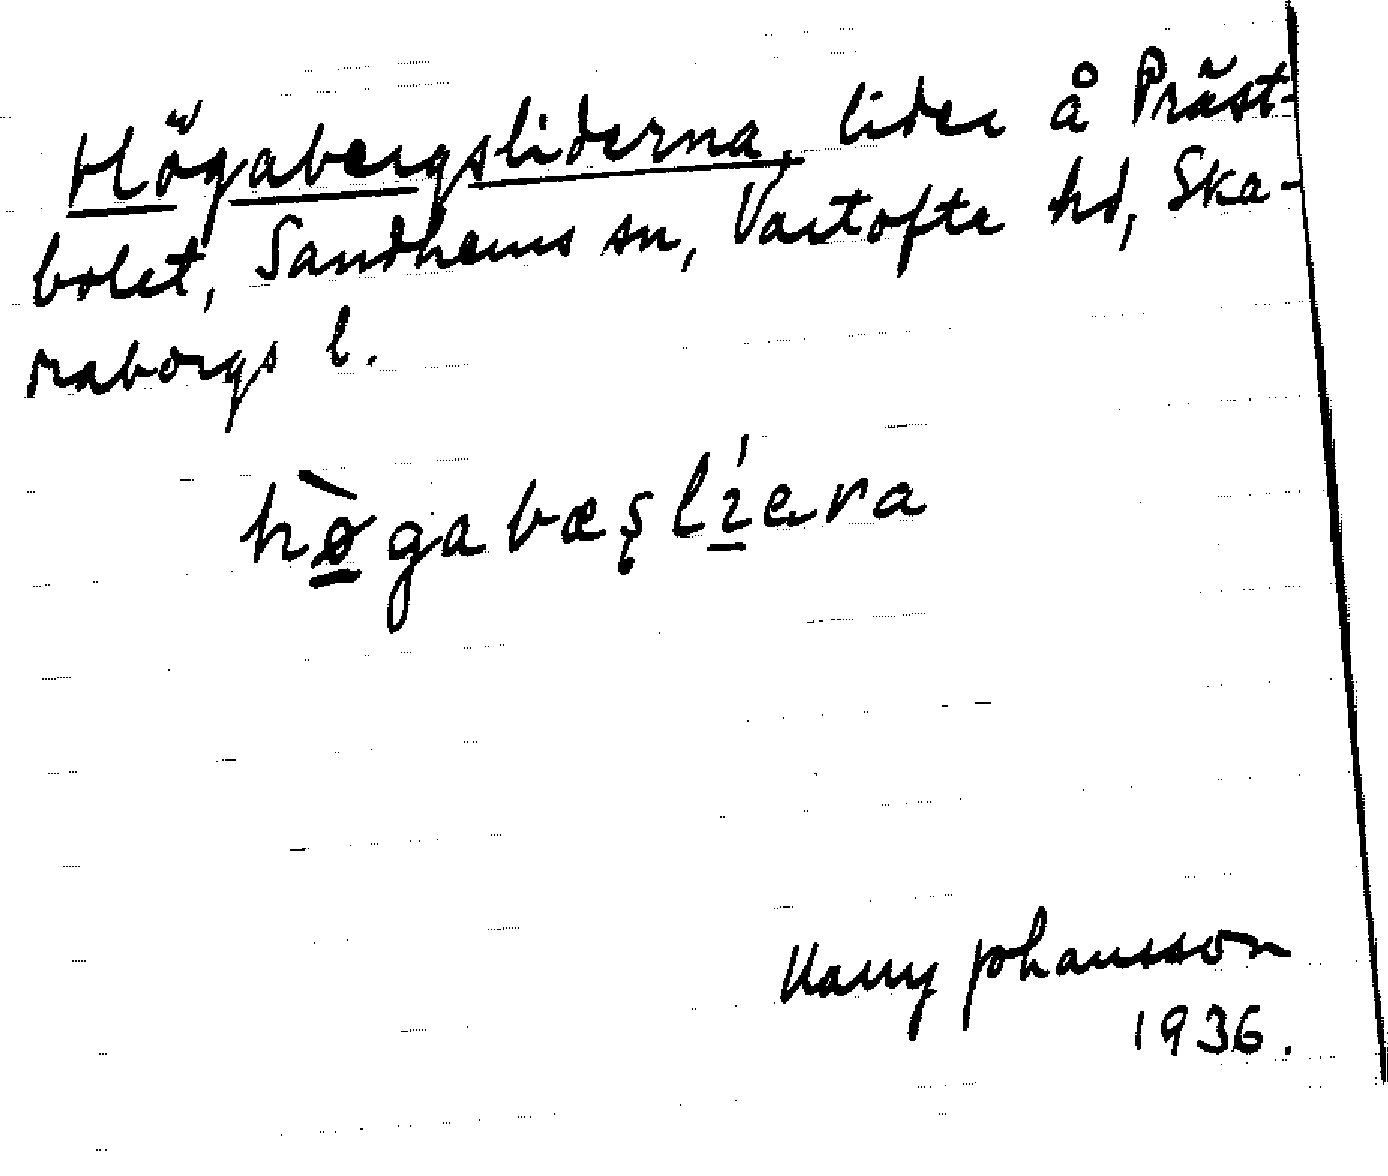 Högabergsliderna, lider å Präst-
bolet, Sandhems sn, Vartofte hd, Ska-
raborgs l.
hø̀gabæʂlíera
Harry Johansson
1936.